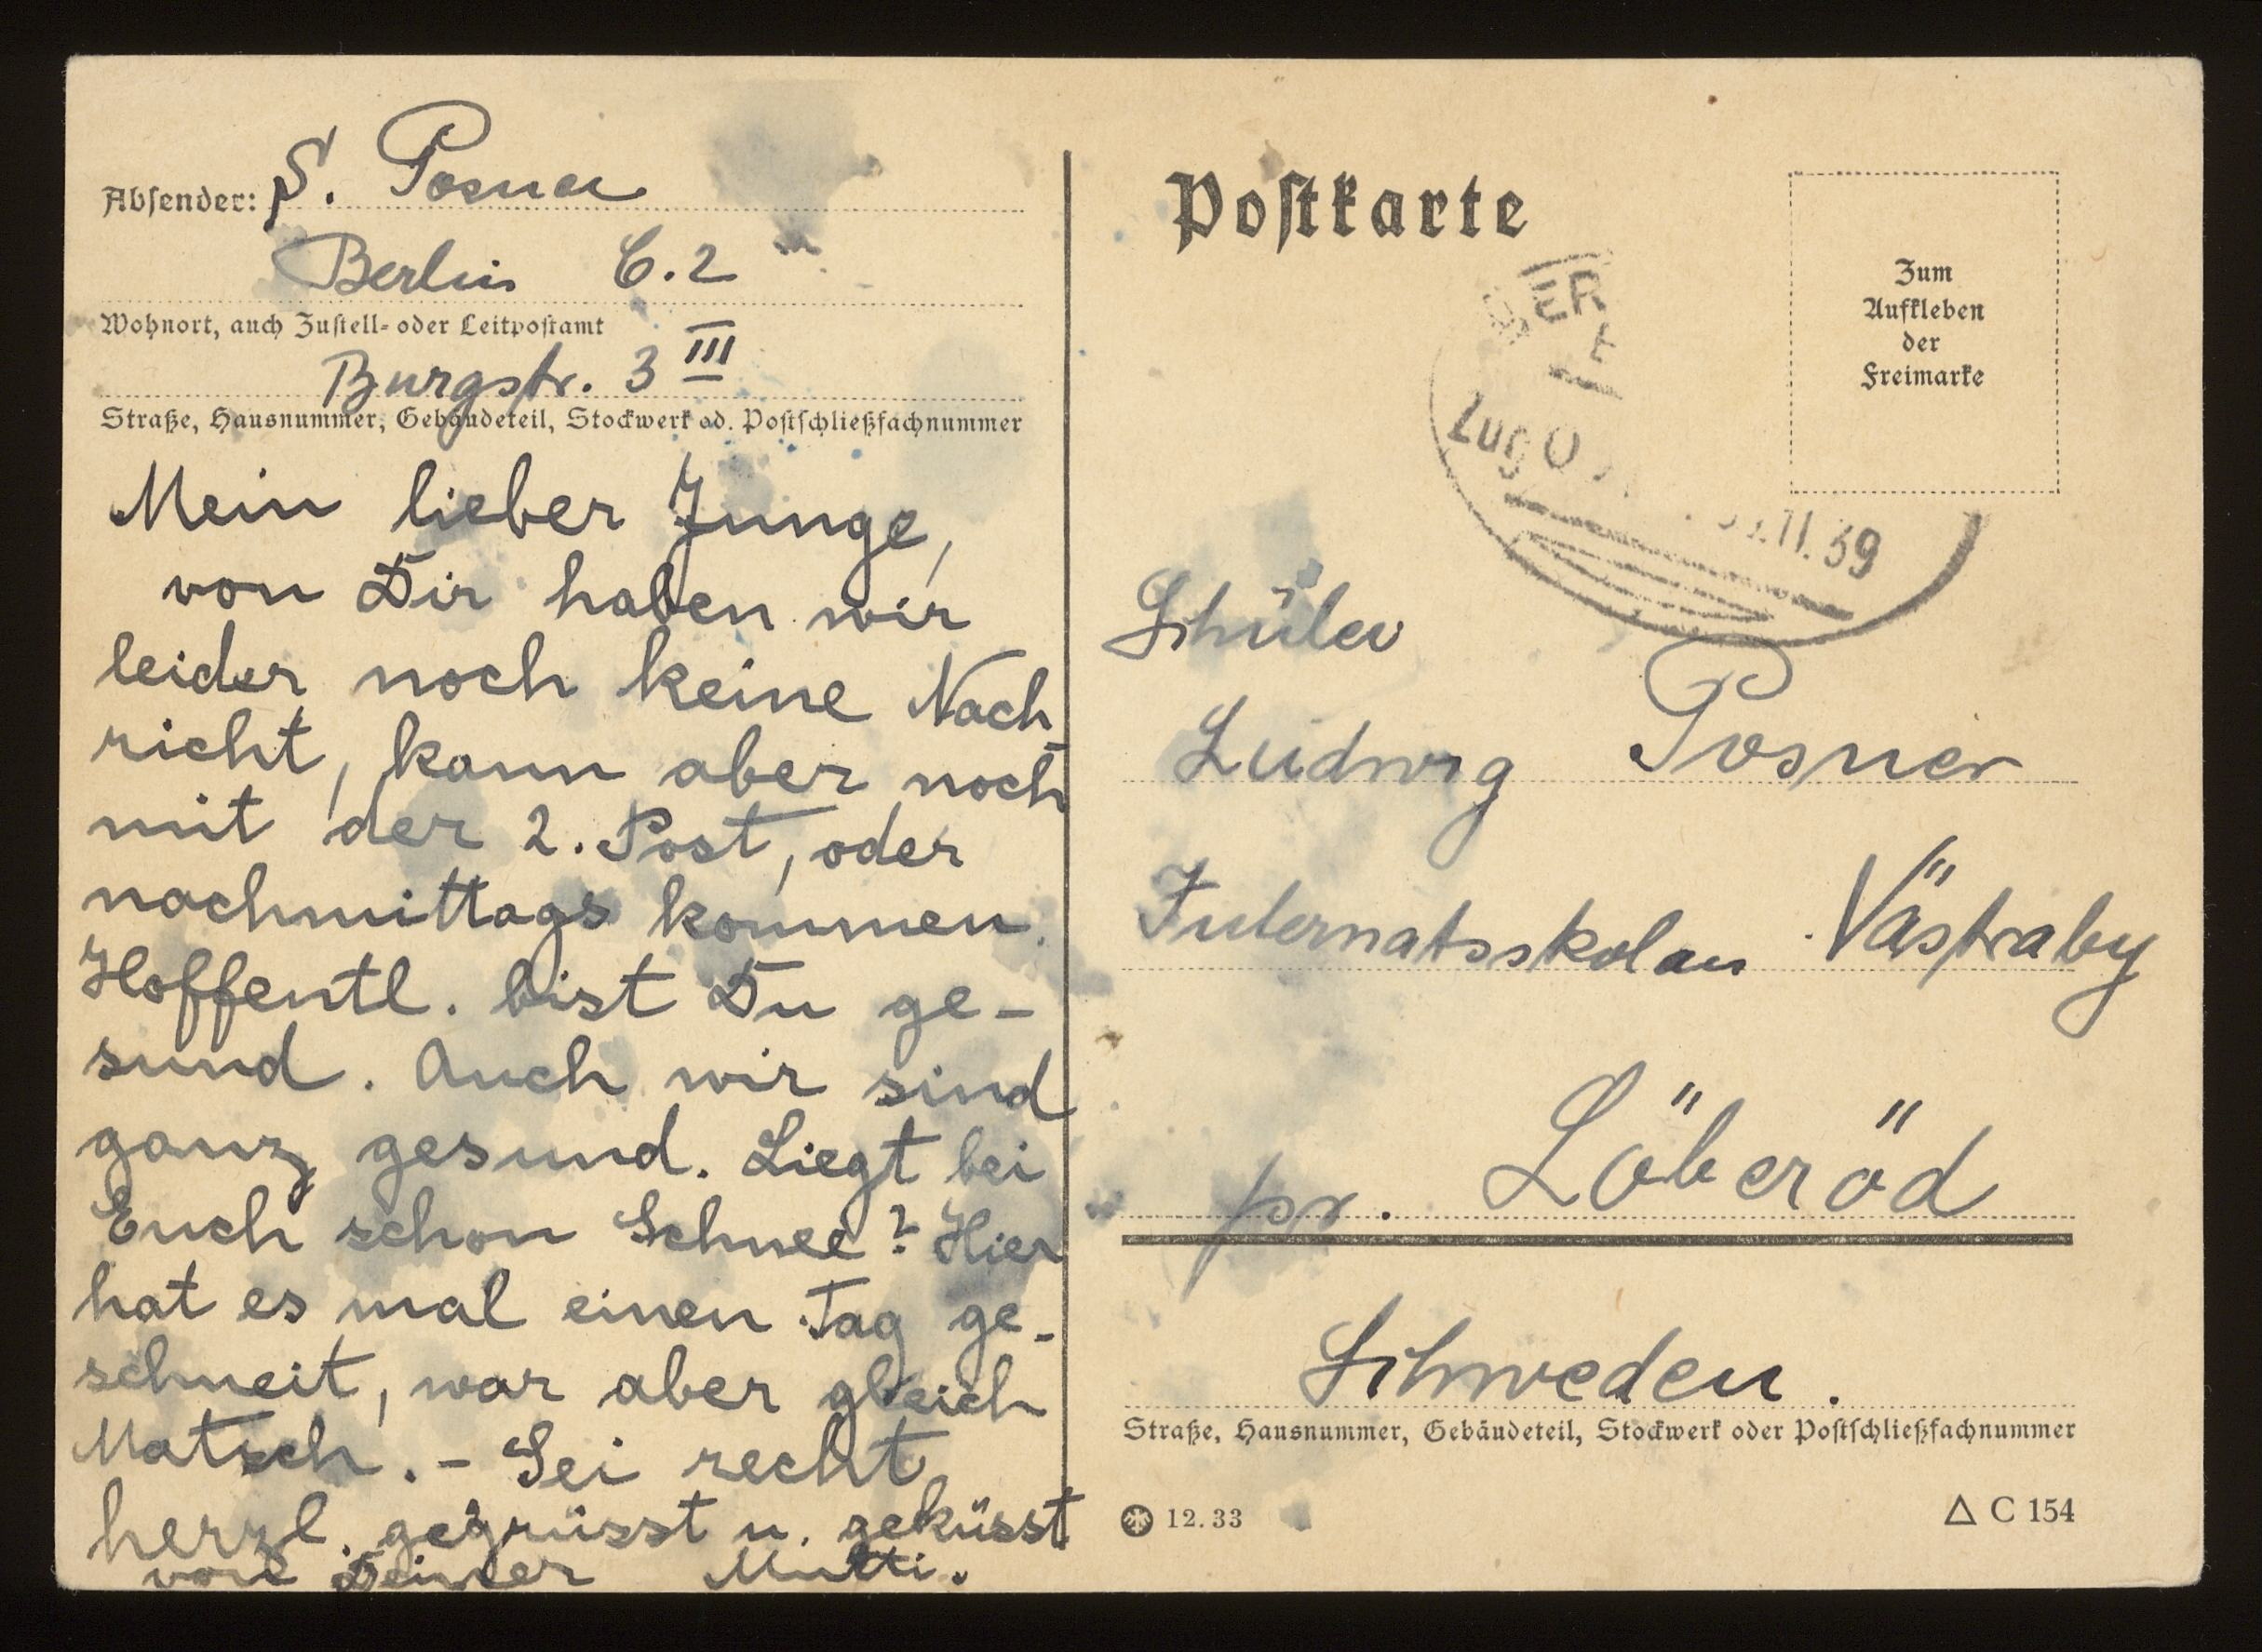 Absender: S. Posner
Berlin C.2
Wohnort, auch Zustell- oder Leitpostamt
Burgstr. 3 III
Straße, Hausnummer, Gebäudeteil, Stockwerk od. Postschließfachnummer
Mein lieber Junge,
von Dir haben wir
leider noch keine Nach-
richt, kann aber noch
mit der 2. Post, oder
nachmittags kommen.
Hoffentl. bist Du ge-
sund. Auch wir sind
ganz gesund. Liegt bei
Euch schon Schnee? Hier
hat es mal einen Tag ge-
schneit, war aber gleich
Matsch. - Sei recht
herzl. gegrüsst u. geküsst
von Deiner Mutti.
Postkarte
Zum
Aufkleben
der
Freimarke
BER
Zug
.11.39
Schüler
Ludwig Posner
Internatsskolan Västraby
pr. Löberöd
Schweden.
Straße, Hausnummer, Gebäudeteil, Stockwerk oder Postschließfachnummer
12.33
△ C 154